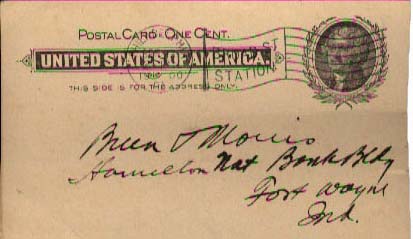 POSTAL CARD - ONE CENT.
UNITED STATES OF AMERICA.
STATION
THIS SIDE IS FOR THE ADDRESS ONLY.
Breen & Morris
Hamilton Nat Bank Bldg
Fort Wayne
Ind.